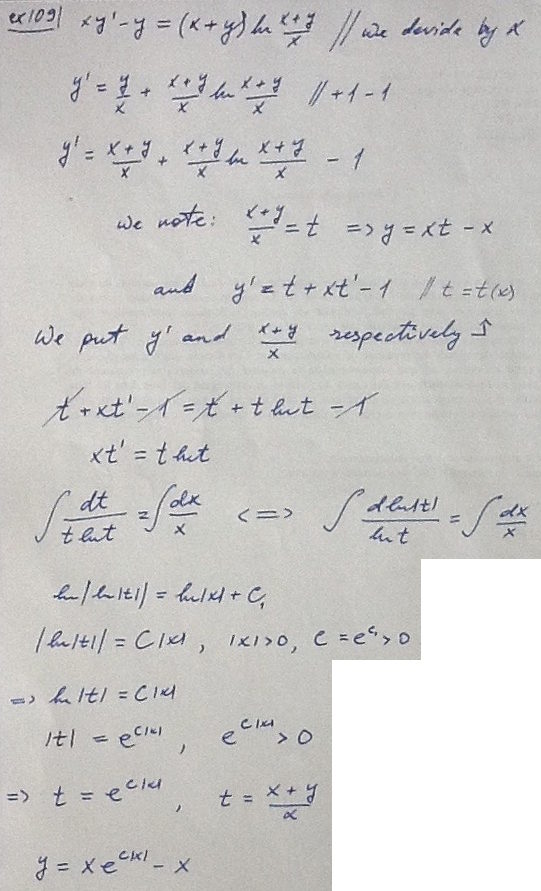 ex109| xy' - y = (x+y) ln (x+y)/x // we devide by x
y' = y/x + (x+y)/x ln (x+y)/x // +1-1
y' = (x+y)/x + (x+y)/x ln (x+y)/x - 1
we note: (x+y)/x = t => y = xt - x
and y' = t + xt' - 1 // t = t(x)
We put y' and (x+y)/x respectively ↥
t + xt' - 1 = t + t ln t - 1
xt' = t ln t
∫ dt/(t ln t) = ∫ dx/x <=> ∫ d ln|t| / ln t = ∫ dx/x
ln|ln|t|| = ln|x| + C₁
|ln|t|| = C|x|, |x|>0, C = e^C₁ > 0
=> ln|t| = C|x|
|t| = e^C|x|, e^C|x| > 0
=> t = e^C|x|, t = (x+y)/x
y = x e^C|x| - x